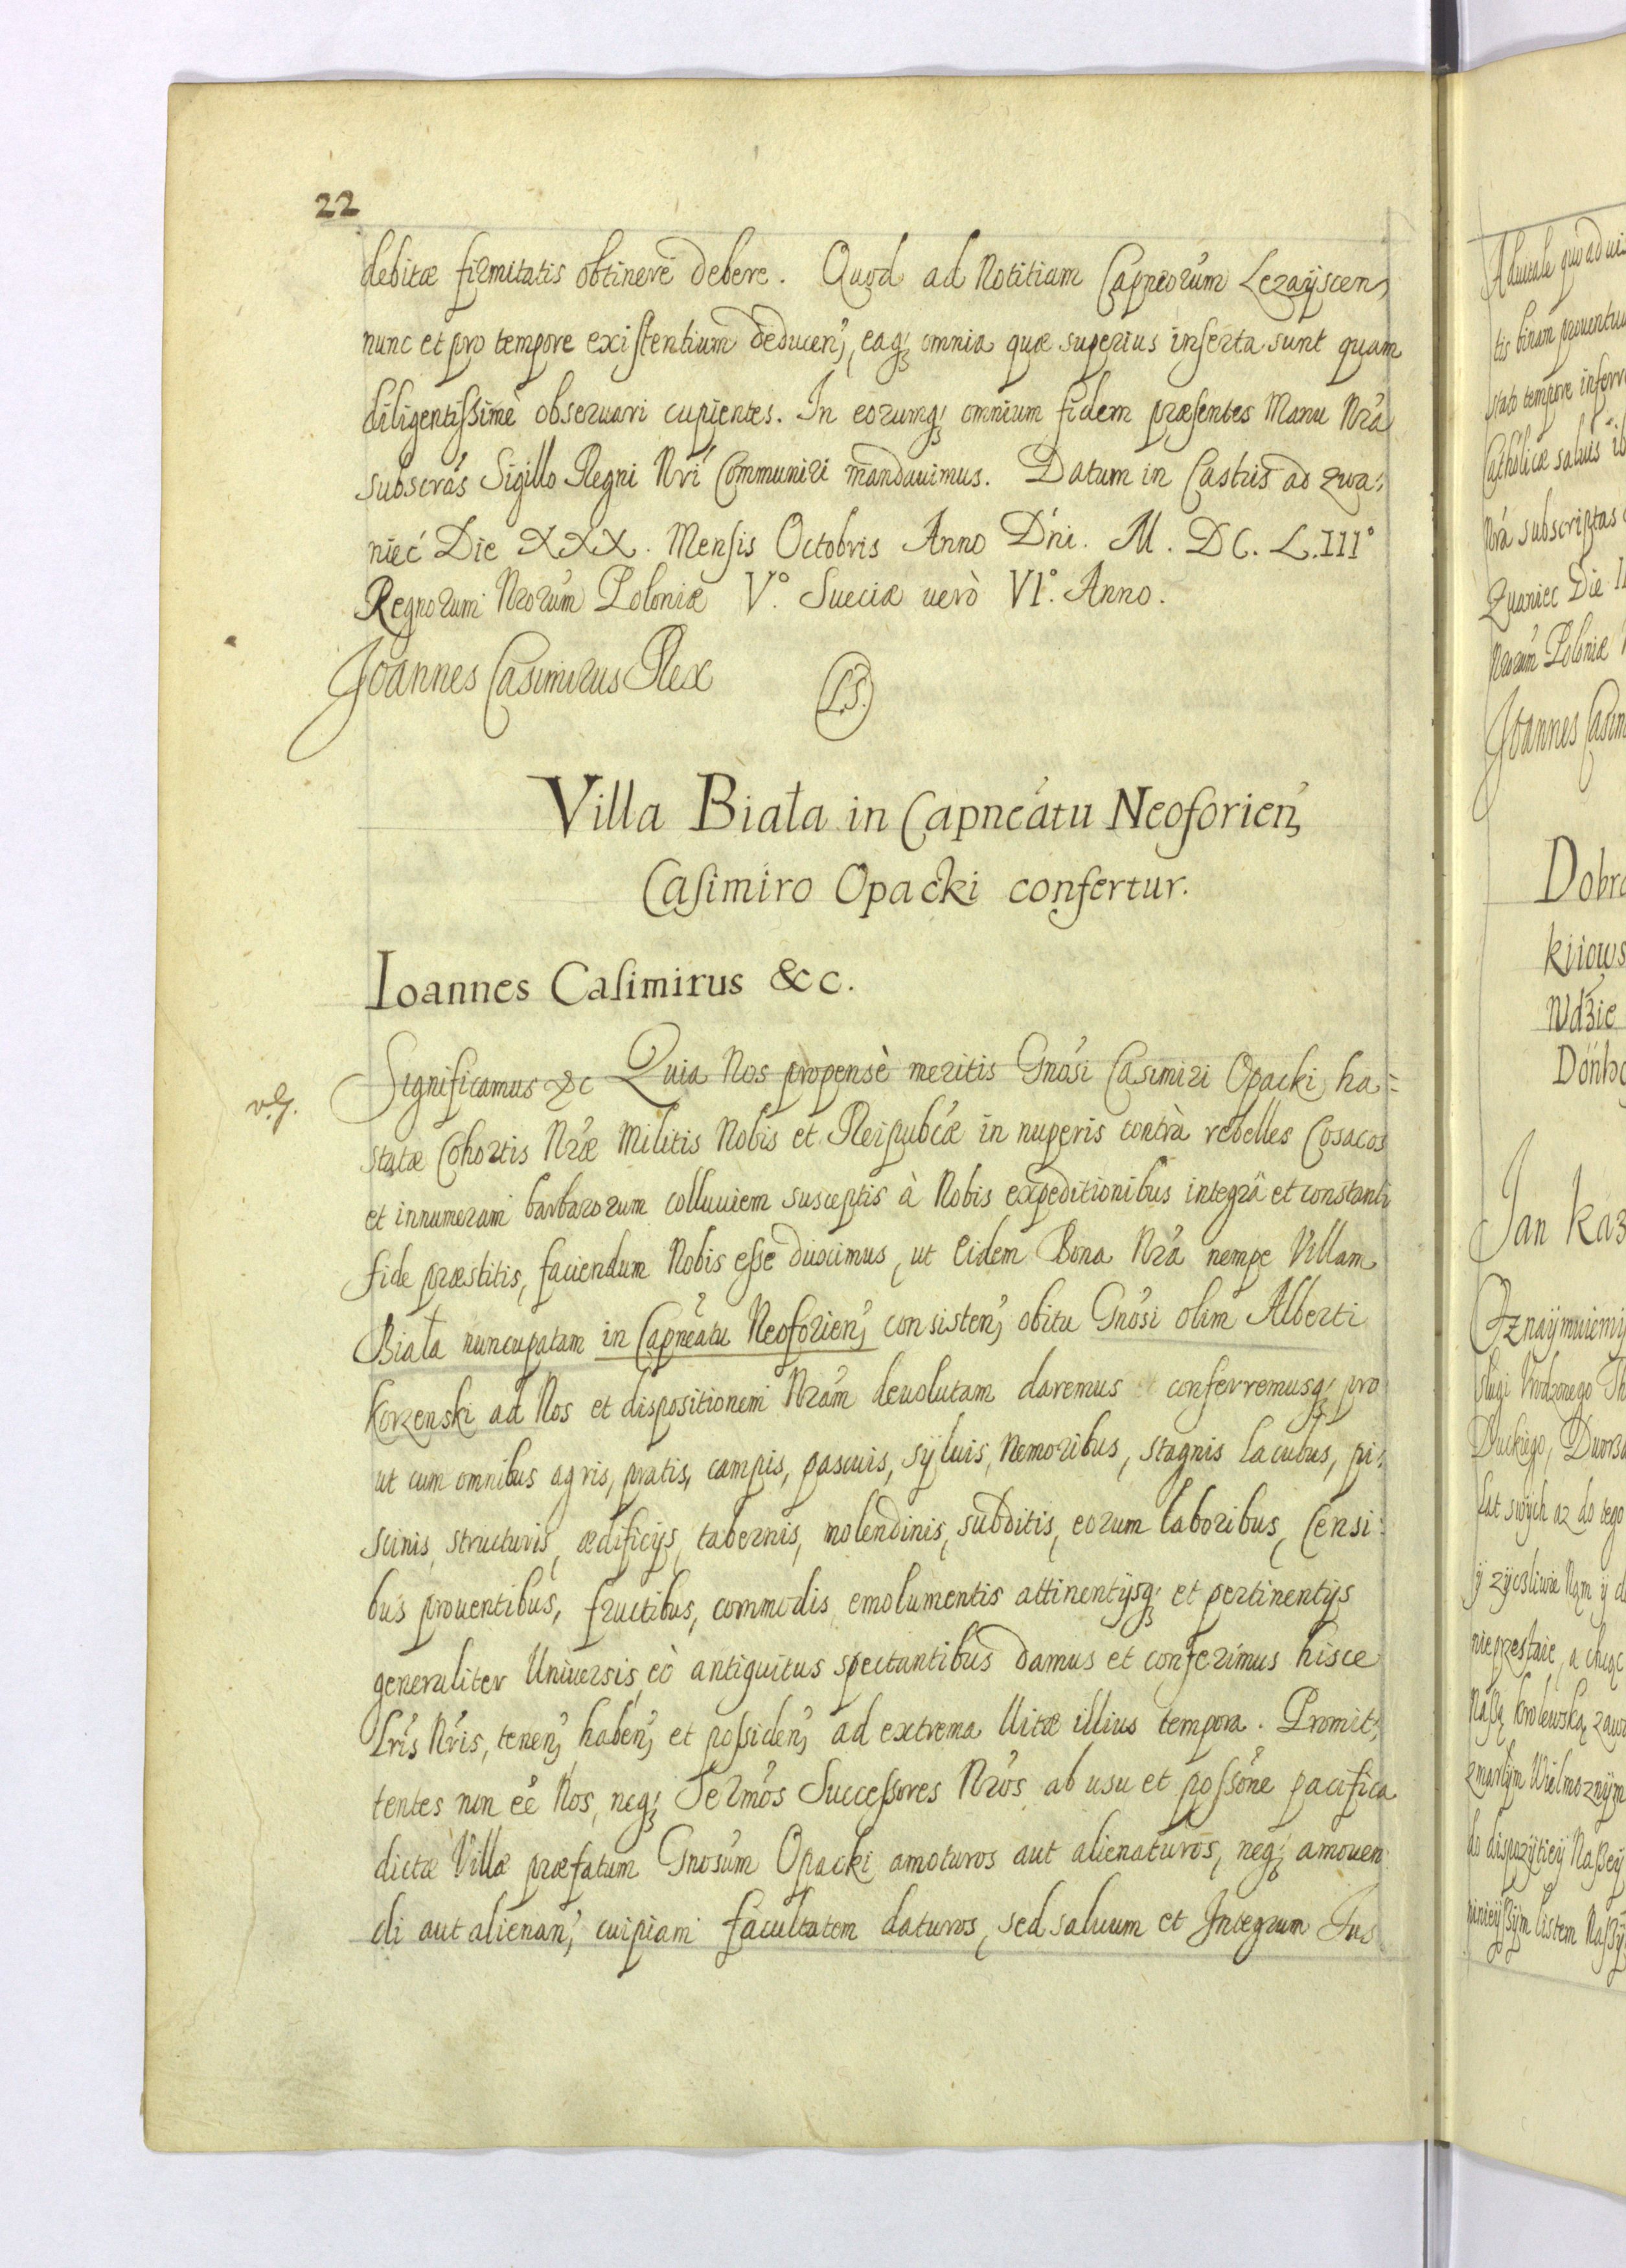 22
debitæ firmitatis obtinere debere. Quod ad Notitiam Capneorum Lezayscen,
nunc et pro tempore existentium deducen, eaq; omnia quæ superius inserta sunt quam
diligentissime observari cupientes. In eorumq; omnium fidem præsentes Manu Nra
subscras Sigillo Regni Nri Communiri mandavimus. Datum in Castris ad Zwa:
niec Die XXX. Mensis Octobris Anno Dni. M. DC. L.III°
Regnorum Nrorum Poloniæ V.° Sueciæ verò VI.° Anno.
Joannes Casimirus Rex
L.S.
Villa Biała in Capneatu Neoforien,
Casimiro Opacki confertur.
Ioannes Casimirus &c.
Significamus &c Quia Nos propensè meritis Gnosi Casimiri Opacki ha=
statæ Cohortis Nræ Militis Nobis et Reipubcæ in nuperis contrà rebelles Cosacos
et innumeram barbarorum colluviem susceptis à Nobis expeditionibus integrâ et constanti
fide præstitis, faciendum Nobis esse duximus, ut Eidem Bona Nra nempe Villam
Biała nuncupatam in Capneatu Neoforien, consisten, obitu Gnosi olim Alberti
Korzenski ad Nos et dispositionem Nram devolutam daremus conferremusq; pro
ut cum omnibus agris, pratis, campis, pascuis, syluis, Nemoribus, stagnis Lacubus, pi:
scinis, structuris, ædificijs, tabernis, molendinis, subditis, eorum laboribus, Censi:
bus proventibus, fructibus, commodis emolumentis attinentijsq; et pertinentijs
generaliter Universis, eò antiquitus spectantibus damus et conferimus hisce
Lris Nris, tenen, haben, et possiden, ad extrema Vitæ illius tempora. Promit:
tentes non eé Nos, neq; Sermos Successores Nros ab usu et possone pacifica
dictæ Villæ præfatum Gnosum Opacki amoturos aut alienaturos, neq; amoven
di aut alienan, cuipiam facultatem daturos, sed salvum et Integrum Jus
Dobra
Jan Kaz